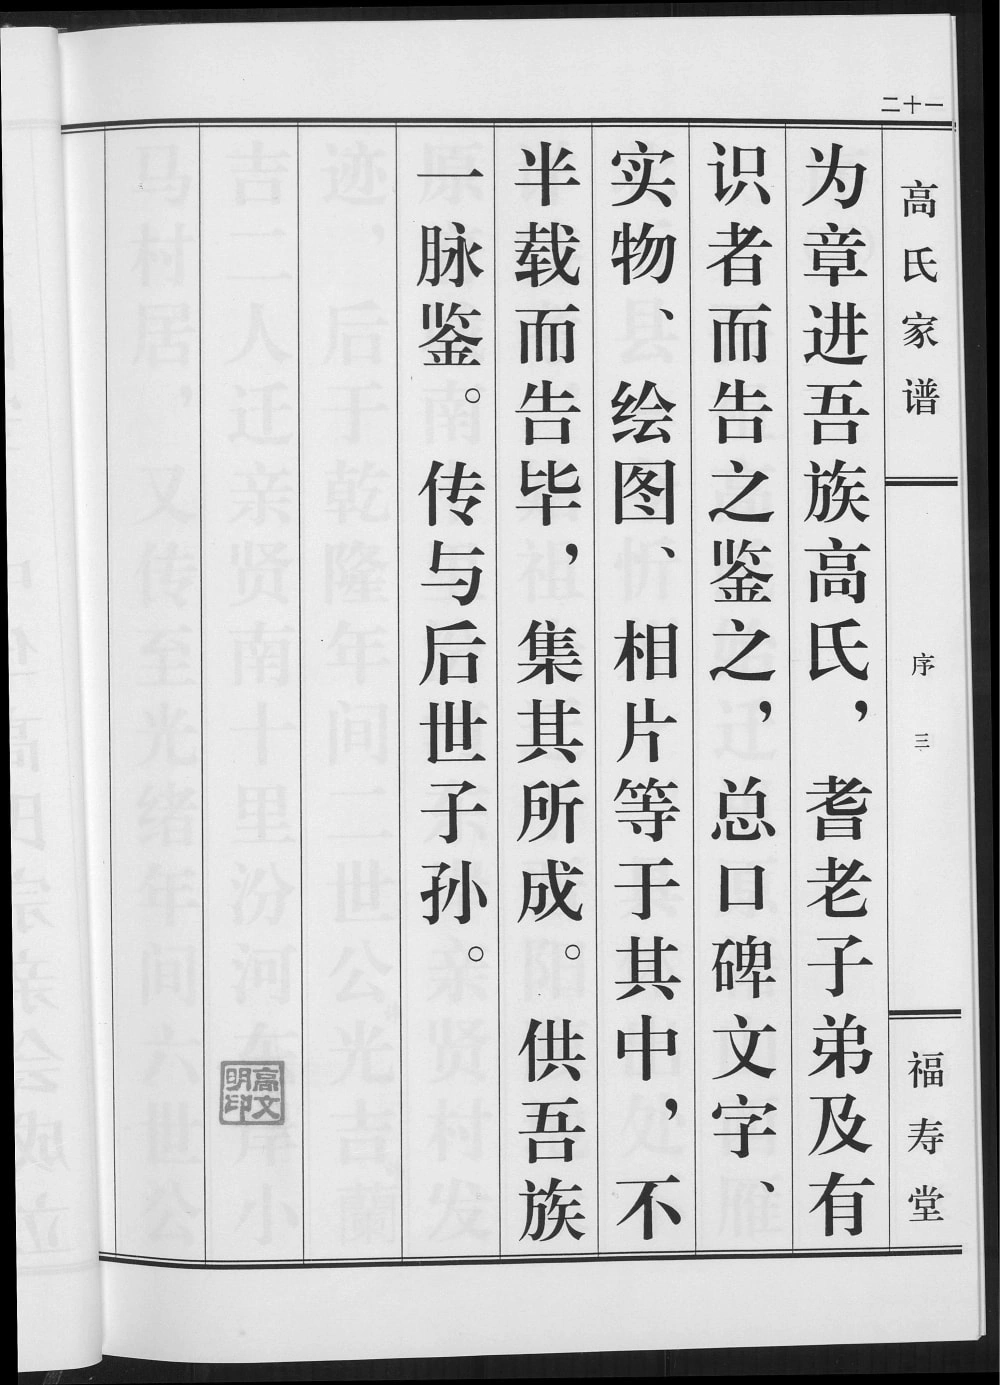 二十一
高氏家谱
序三
福寿堂
为章进吾族高氏，耆老子弟及有
识者而告之鉴之，总口碑文字、
实物、绘图、相片等于其中，不
半载而告毕，集其所成。供吾族
一脉鉴。传与后世子孙。
高文
明印